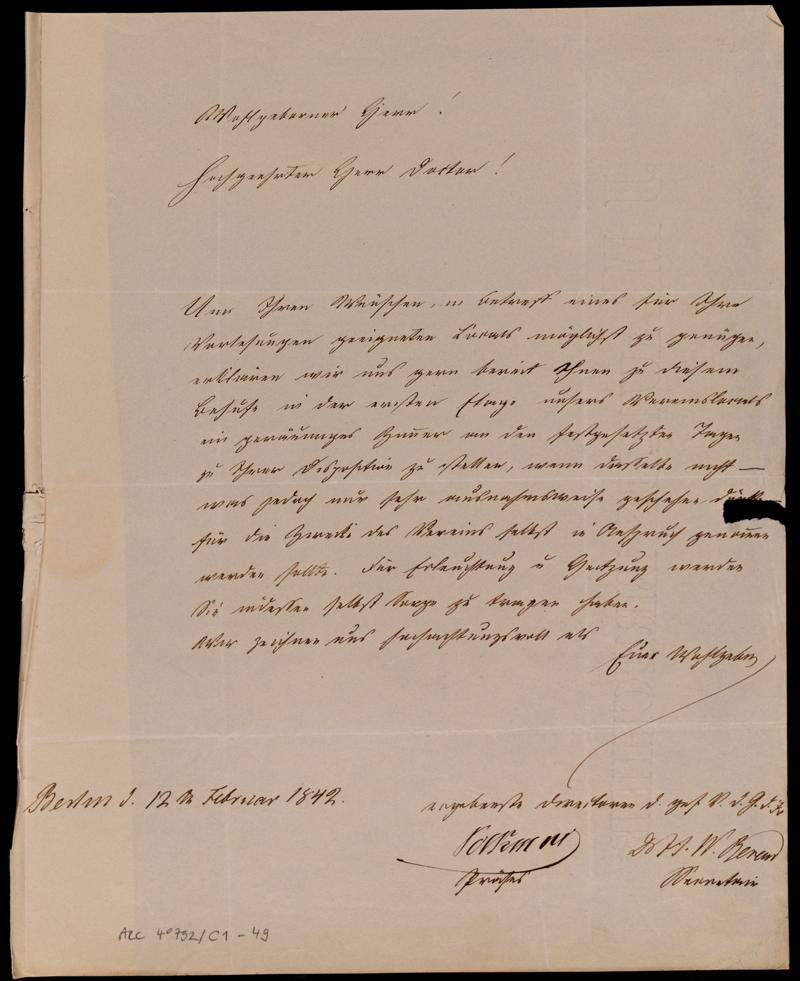 Wohlgeborner Herr!
Hochgeehrter Herr Doctor!
Um Ihren Wünschen, in Betreff eines für Ihre
Vorlesungen geeigneten Locals möglichst zu genügen,
erklären wir uns gern bereit Ihnen zu diesem
Behufe in der ersten Etage unsers Vereinslocals
ein geräumiges Zimmer an den festgesetzten Tagen
zu Ihrer Disposition zu stellen, wenn dasselbe nicht —
was jedoch nur sehr ausnahmsweise geschehen
für die Zwecke des Vereins selbst in Anspruch genommen
werden sollte. Für Erleuchtung u Heitzung werden
Sie indessen selbst Sorge zu tragen haben.
Wir zeichnen uns hochachtungsvoll als
Euer Wohlgeborn
Berlin d. 12 Februar 1842.
ergebenste Directoren d. ges. V. d. G. d. F.
Präses
Secretair
ARC 4° 792/C1-49